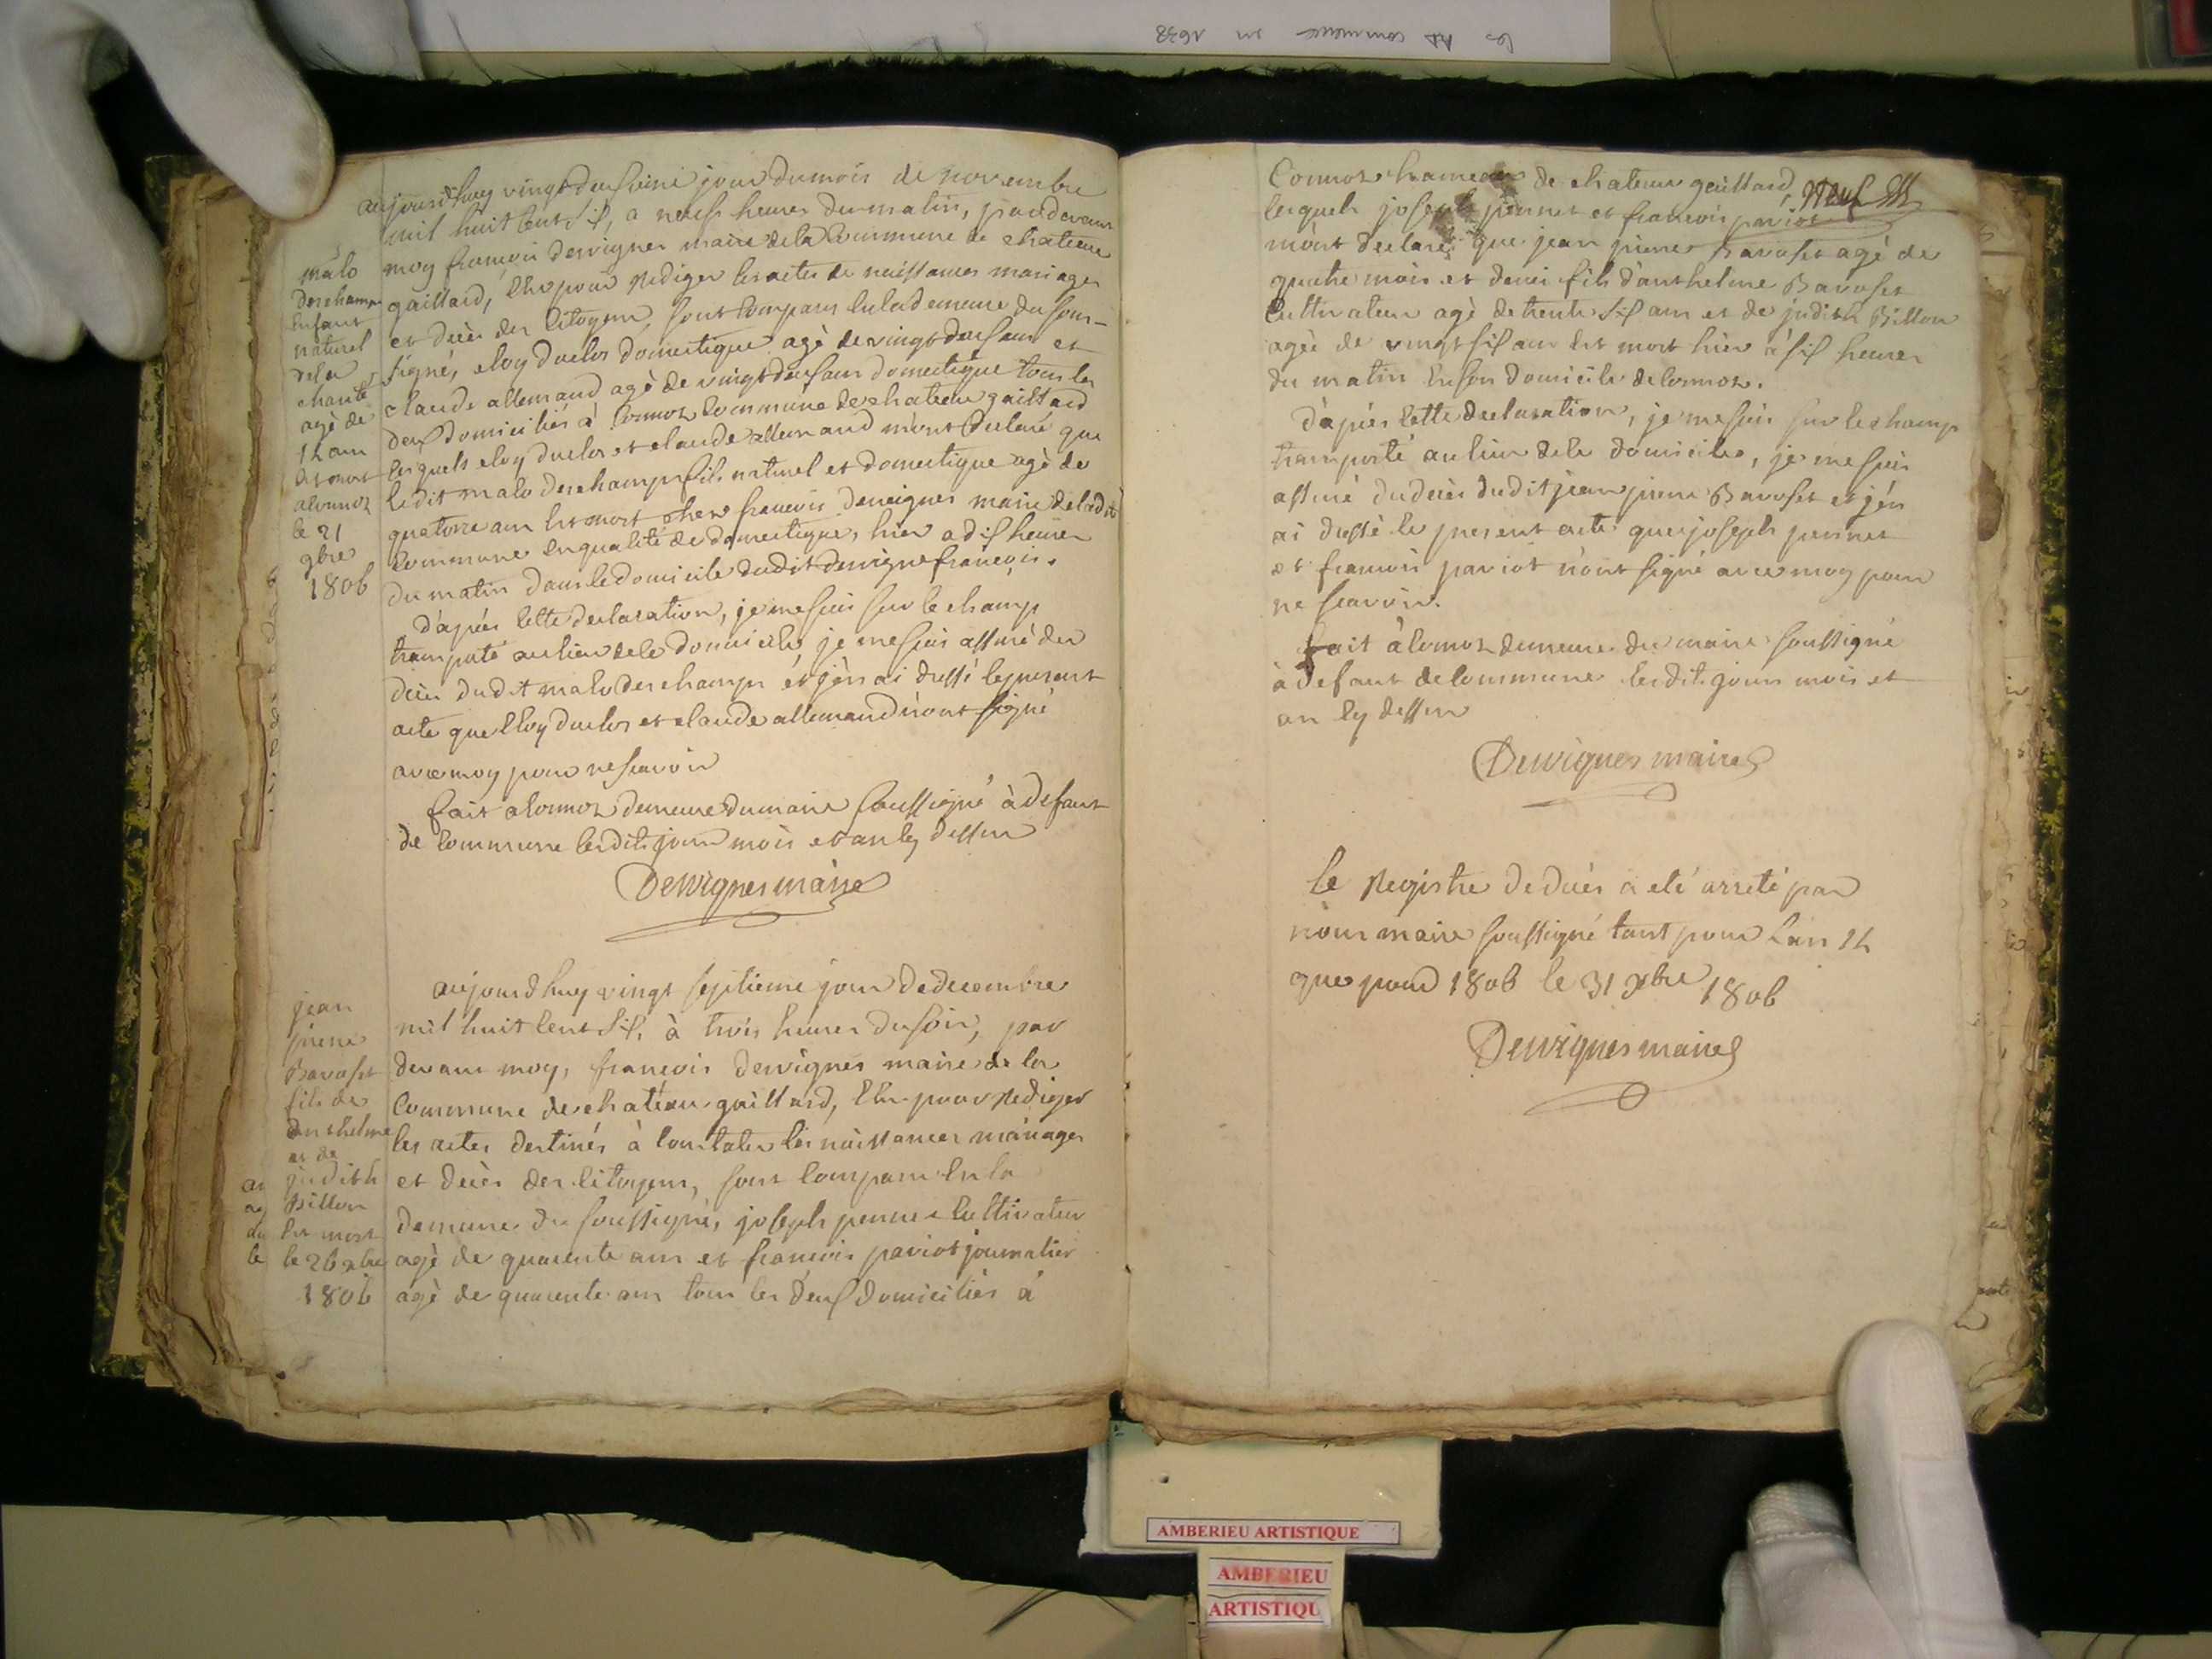 malo
deschamps
enfant
naturel
de la
charité
agè de
14 ans
est mort
a cormoz
le 21
9bre
1806
aujourdhuy vingt deuxieme jour du mois de novembre
mil huit cent six, a neuf heures du matin, pardevant
moy francois dervignes maire de la commune de chateau
gaillard, elu pour rediger les actes de naissances mariages
et decès des citoyens, sont comparus en la demeure du sous-
signé, eloy duclos domestique agè de vingt deux ans et
claude allemand agè de vingt deux ans domestique tous les
deux domiciliés à cormoz commune de chateau gaillard
lesquels eloy duclos et claude allemand m'ont declaré que
ledit malo deschamps fils naturel et domestique agè de
quatorze ans est mort chez francois dervignes maire de ladite
commune en qualité de domestique, hier a dix heures
du matin dans le domicile dudit dervigne francois.
d'après cette declaration, je me suis sur le champ
transporté au lieu de ce domicile, je me suis assuré du
decès dudit malo deschamps et j'en ai dressé le present
acte que eloy duclos et claude allemand n'ont signé
avec moy pour ne scavoir
fait a cormoz demeure du maire soussigné à defaut
de commune lesdits jour mois et an cy dessus
Dervignes maire
jean
pierre
Bavoset
fils de
danthelme
et de
judith
Billon
est mort
le 26 xbre
1806
aujourdhuy vingt septieme jour de decembre
mil huit cent six, à trois heures du soir, par
devant moy, francois dervignes maire de la
commune de chatèau gaillard, elu pour rediger
les actes destinés à constater les naissances mariages
et decès des citoyens, sont comparus en la
demeure du soussigné, joseph pennet cultivateur
agè de quarente ans et francois pariot journalier
agè de quarente ans tous les deux domiciliés à
Cormoz hameau de chateau gaillard,
lesquels joseph pennet et francois pariot
m'ont declaré que jean pierre Bavoset agè de
quatre mois et demi fils d'anthelme Bavoset
cultivateur agè de trente six ans et de judith Billon
agèe de vingt six ans est mort hier à six heures
du matin en son domicile de cormoz.
d'après cette declaration, je me suis sur le champ
transporté au lieu de ce domicile, je me suis
assuré du decès dudit jean pierre Bavoset et j'en
ai dressé le present acte que joseph pennet
et francois pariot n'ont signé avec moy pour
ne scavoir.
fait à cormoz demeure du maire soussigné
à defaut de commune lesdits jours mois et
an cy dessus
Dervignes maire
le Registre de decès a eté arreté par
nous maire soussigné tant pour l'an 14
que pour 1806 le 31 xbre 1806
Dervignes maire
AMBERIEU ARTISTIQUE
AMBERIEU
ARTISTIQU